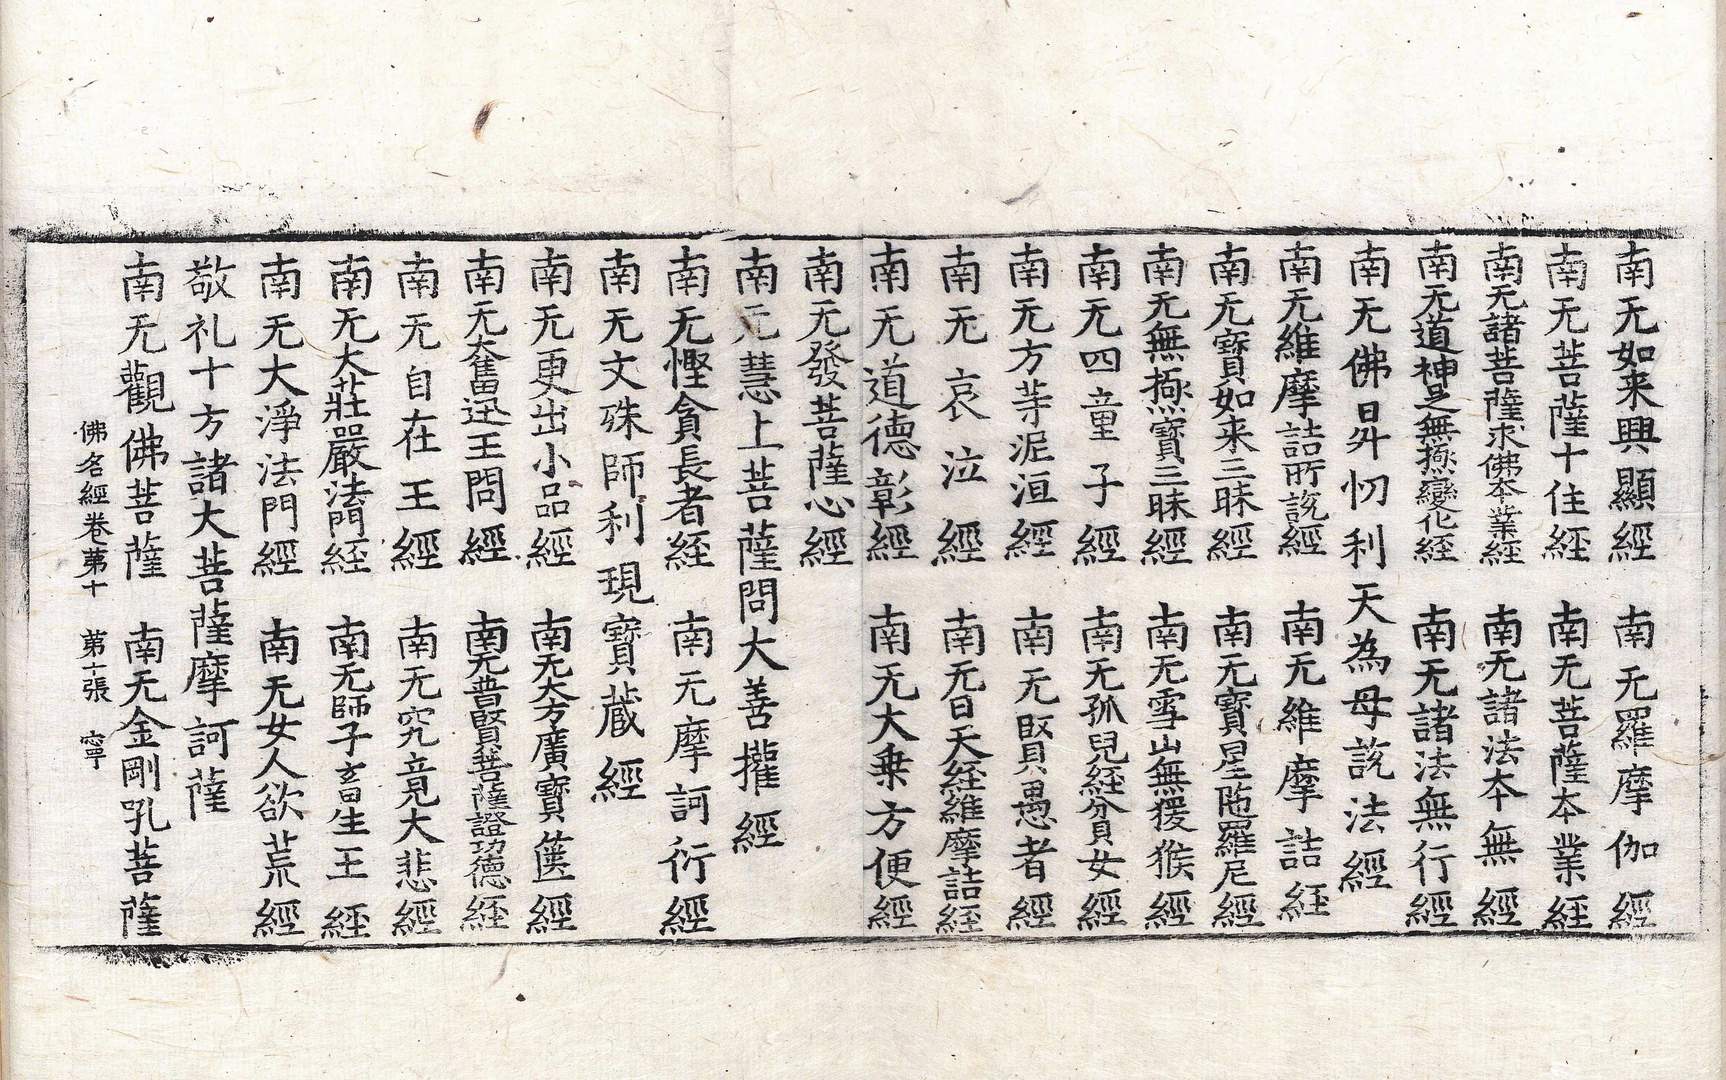 南无如来興顯經 南无羅摩伽經
南无菩薩十住經 南无菩薩本業經
南无諸菩薩求佛本業經 南无諸法本無經
南无道神足無極變化經 南无諸法無行經
南无佛昇忉利天為母說法經
南无維摩詰所說經 南无維摩詰經
南无寶如来三昧經 南无寶星陁羅尼經
南无無極寶三昧經 南无雪山無猨猴經
南无四童子經 南无孤兒經分貧女經
南无方等泥洹經 南无賢愚者經
南无哀泣經 南无日天經維摩詰經
南无道德彰經 南无大乗方便經
南无發菩薩心經
南无慧上菩薩問大善攉經
南无慳貪長者經 南无摩訶衍經
南无文殊師利現寶蔵經
南无更出小品經 南无大方廣寶篋經
南无大奮迅王問經 南无普賢菩薩證功德經
南无自在王經 南无究竟大悲經
南无大莊嚴法門經 南无師子畜生王經
南无大淨法門經 南无女人欲荒經
敬礼十方諸大菩薩摩訶薩
南无觀佛菩薩 南无金剛吼菩薩
佛名經卷苐十 苐十張 寧